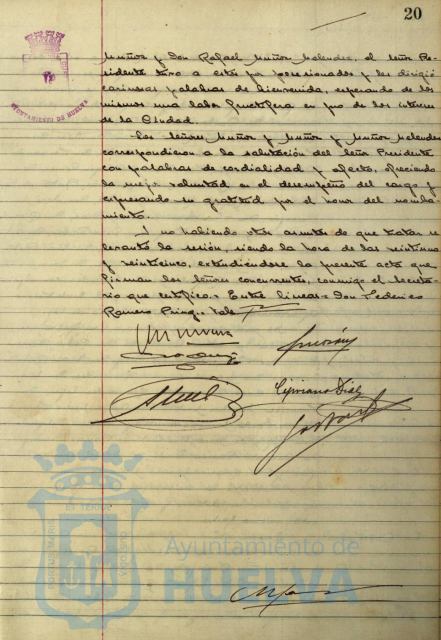 20
Muñoz y Don Rafael Muñoz Melendez, el señor Pre-
sidente tuvo a estos por posesionados y les dirigió
cariñosas palabras de bienvenida, esperando de los
mismos una labor fructífera en pro de los intereses
de la Ciudad.
Los señores Muñoz y Muñoz y Muñoz Melendez
correspondieron a la salutación del señor Presidente
con palabras de cordialidad y afecto, ofreciendo
la mejor voluntad en el desempeño del cargo y
expresando su gratitud por el honor del nombra-
miento.
Y no habiendo otros asuntos de que tratar se
levantó la sesión, siendo la hora de las veintiuna
y veinticinco, extendiéndose la presente acta que
firman los señores concurrentes, conmigo el Secreta-
rio que certifico.- Entre lineas - Don Federico
Romero Pring.- Vale
Cipriano Diaz
AYUNTAMIENTO DE HUELVA
Ayuntamiento de
HUELVA